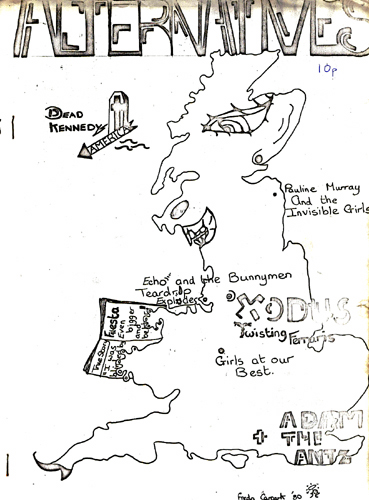 ALTERNATIVES
10p
DEAD
KENNEDYS
AMERICA
Pauline Murray
And the
Invisible Girls
Echo and the Bunnymen
Teardrop
Explodes
EXODUS
Twisting
Ferraris
Fiesta
Even
bigger
and
The Sun
I was
Girls at our
Best.
ADAM
+ THE
ANTZ
'80